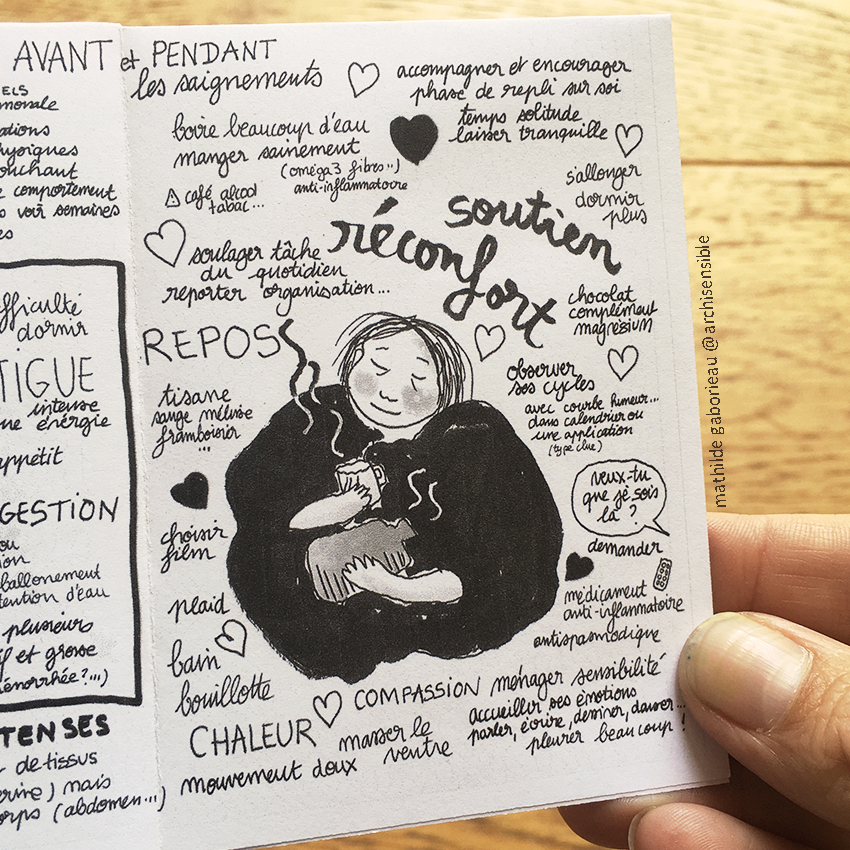 AVANT et PENDANT
les saignements
ELS
ations
physiques
ouchant
comportement
voir semaines
es
fficulté
dormir
TIGUE
intense
ne énergie
appétit
GESTION
ou
ion
ballonement
tention d'eau
plusieurs
if et grosse
énorrhée?...)
TENSES
de tissus
mais
orps (abdomen...)
accompagner et encourager
phase de repli sur soi
temps solitude
laisser tranquille
boire beaucoup d'eau
manger sainement
(oméga 3 fibres..)
anti-inflammatoire
⚠ café alcool
tabac...
s'allonger
dormir
plus
soutien
réconfort
soulager tâche
du quotidien
reporter organisation...
chocolat
complément
magnésium
REPOS
observer
ses cycles
avec courbe humeur...
dans calendrier ou
une application
(type clue)
tisane
sauge mélisse
framboisier
...
veux-tu
que je sois
là ?
demander
choisir
film
médicament
anti-inflammatoire
antispasmodique
plaid
bain
bouillotte
CHALEUR
COMPASSION
ménager sensibilité
accueillir ses émotions
parler, écrire, dessiner, danser...
pleurer beaucoup !
masser le
ventre
mouvement doux
mathilde gaborieau @archisensible